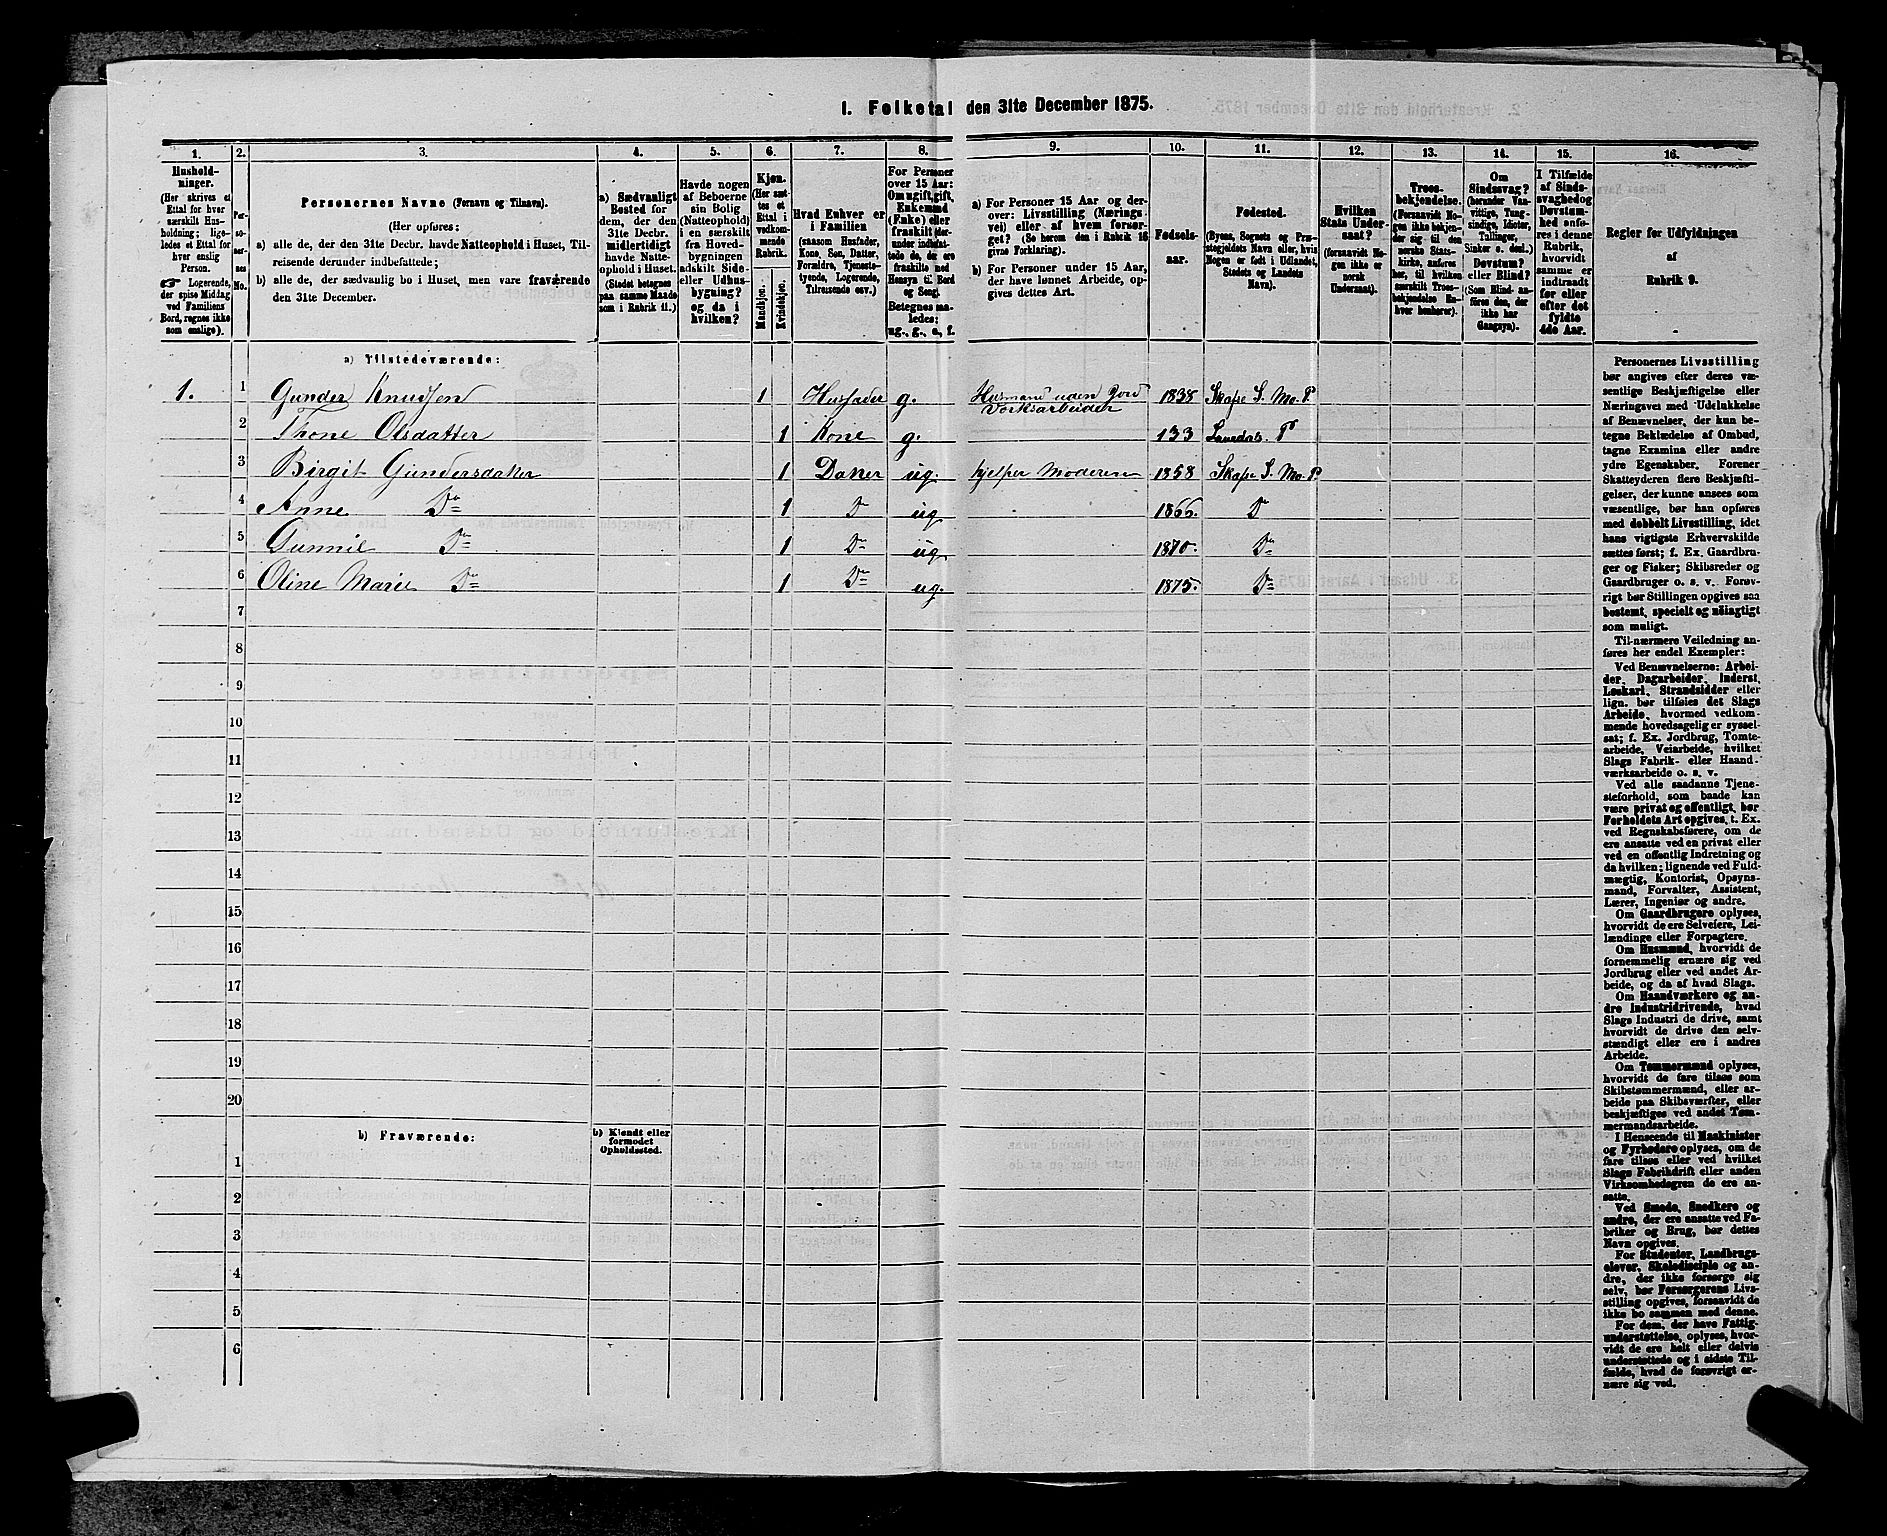 1. Folketal den 31te December 1875.
1. 2. 3. 4. 5. 6. 7. 8. 9. 10. 11. 12. 13. 14. 15. 16.
Husholdninger.
(Her skrives et
Ettal for hver
særskilt Husholdning;
ligeledes et Ettal for
hver enslig
Person.
☛ Logerende,
der spise Middag
ved Familiens
Bord, regnes ikke
som enslige).
Personernes No.
Personernes Navne (Fornavn og Tilnavn).
(Her opføres:
a) alle de, der den 31te Decbr. havde Natteophold i Huset, Tilreisende derunder indbefattede;
b) alle de, der sædvanlig bo i Huset, men vare fraværende
den 31te December.
a) Sædvanligt
Bosted for
dem, der den
31te Decbr.
midlertidigt
havde Natteophold i Huset.
(Stedet betegnes
paa samme Maade
som i Rubrik 11.)
Havde nogen
af Beboerne
sin Bolig
(Natteophold)
i en særskilt
fra Hovedbygningen
adskilt Side-
eller Udhusbygning?
og da i
hvilken?
Kjøn.
(Her sættes et
Ettal i
vedkommende
Rubrik.
Mandkjøn.
Kvindekjøn.
Hvad Enhver er
i Familien
(saasom Husfader,
Kone, Søn, Datter,
Forældre, Tjenestetyende, Logerende,
Tilreisende osv.)
For Personer
over 15 Aar:
Om ugift, gift,
Enkemand
(Enke) eller
fraskilt (derunder indbefattede de, der ere
fraskilte med
Hensyn til Bord
og Seng).
Betegnes saaledes:
ug., g., e., f.
a) For Personer 15 Aar og derover: Livsstilling (Næringsvei) eller af hvem forsørget? (Se herom den i Rubrik 16
givne Forklaring).
b) For Personer under 15 Aar,
der have lønnet Arbeide, opgives dettes Art.
Fødselsaar.
Fødested.
(Byens, Sognets og Præstegjeldets Navn eller, hvis
Nogen er født i Udlandet,
Stedets og Landets
Navn).
Hvilken
Stats Undersaat?
(forsaavidt Nogen ikke er
norsk
Undersaat).
Troesbekjendelse.
(Forsaavidt Nogen ikke bekjender sig til den
norske Statskirke, anføres
her, til hvilken
særskilt Troesbekjendelse Enhver henhører).
Om
Sindssvag?
(herunder Vanvittige, Tungsindige, Idioter,
Tullinger,
Sinker o. desl.)
Døvstum?
eller Blind?
(Som Blind anføres den, der
ikke har
Gangsyn).
I Tilfælde
af Sindssvaghed og
Døvstumhed anføres i denne
Rubrik,
hvorvidt
samme er
indtraadt
før eller
efter det
fyldte
4de Aar.
Regler for Udfyldningen
af
Rubrik 9.
a) Tilstedeværende:
1. 1 Gunder Knudsen 1 Husfader g. Husmand uden Jord Værksarbeider 1838 Skafse S. Mo. P.
2 Thone Olsdatter 1 Kone g. 133 Laurdal P
3 Birgit Gundersdatter 1 Datter ug. hjelper Moderen 1858 Skafse S. Mo. P.
4 Anne Do 1 D ug 1866. D
5 Gunnil Do 1 Do ug. 1870. Do
6 Oline Marie Do 1 Do ug. 1875. Do
7
8
9
10
11
12
13
14
15
16
17
18
19
20
b) Fraværende:
b) Kjendt eller
formodet
Opholdssted.
1
2
3
4
5
6
Personernes Livsstilling
bør angives efter deres væsentlige Beskjæftigelse eller
Næringsvei med Udelukkelse
af Benævnelser, der kun betegne Beklædelse af Ombud,
tagne Examina eller andre
ydre Egenskaber. Forener
Skatteyderen flere Beskjæftigelser, der kunne ansees som
væsentlige, bør han opføres
med dobbelt Livsstilling, idet
hans vigtigste Erhvervskilde
sættes først; f. Ex. Gaardbruger og Fisker; Skibsreder og
Gaardbruger o. s. v. Forøvrigt bør Stillingen opgives saa
bestemt, specielt og nøiagtigt
som muligt.
Til nærmere Veiledning anføres her endel Exempler:
Ved Benævnelserne: Arbeider, Dagarbeider, Inderst,
Løskarl, Strandsidder eller
lign. bør tilføies det Slags
Arbeide, hvormed vedkommende hovedsagelig er sysselsat; f. Ex. Jordbrug, Tomtearbeide, Veiarbeide, hvilket
Slags Fabrik- eller Haandværksarbeide o. s. v.
Ved alle saadanne Tjenesteforhold, som baade kan
være privat og offentligt, bør
Forholdets Art opgives, t. Ex.
ved Regnskabsførere, om de
ere ansatte ved en privat eller
ved en offentlig Indretning og
da hvilken; lignende ved Fuldmægtig, Kontorist, Opsynsmand, Forvalter, Assistent,
Lærer, Ingeniør og andre.
Om Gaardbrugere oplyses,
hvorvidt de ere Selveiere, Leilændinge eller Forpagtere.
Om Husmænd, hvorvidt de
fornemmelig ernære sig ved
Jordbrug eller ved andet Arbeide, og da af hvad Slags.
Om Haandværkere og andre Industridrivende, hvad
Slags Industri de drive, samt
hvorvidt de drive den selvstændigt eller ere i andres
Arbeide.
Om Tømmermænd oplyses,
hvorvidt de fare tilsøs som
Skibstømmermænd, eller arbeide paa Skibsværfter, eller
beskjæftiges ved andet Tømmermandsarbeide.
I Henseende til Maskinister
og Fyrbødere oplyses, om de
fare tilsøs eller ved hvilket
Slags Fabrikdrift eller anden
Virksomhedsgren de ere ansatte.
Ved Smede, Snedkere og
andre, der ere ansatte ved Fabriker og Brug, bør dettes
Navn opgives.
For Studenter, Landbrugselever, Skoledisciple og andre, der ikke forsørge sig
selv, bør Forsørgerens Livsstilling opgives, forsaavidt de
ikke bo sammen med denne.
For dem, der have Fattigunderstøttelse, oplyses, hvorvidt de ere helt eller delvis
understøttede og i sidste Tilfælde, hvad de forøvrigt ernære sig ved.